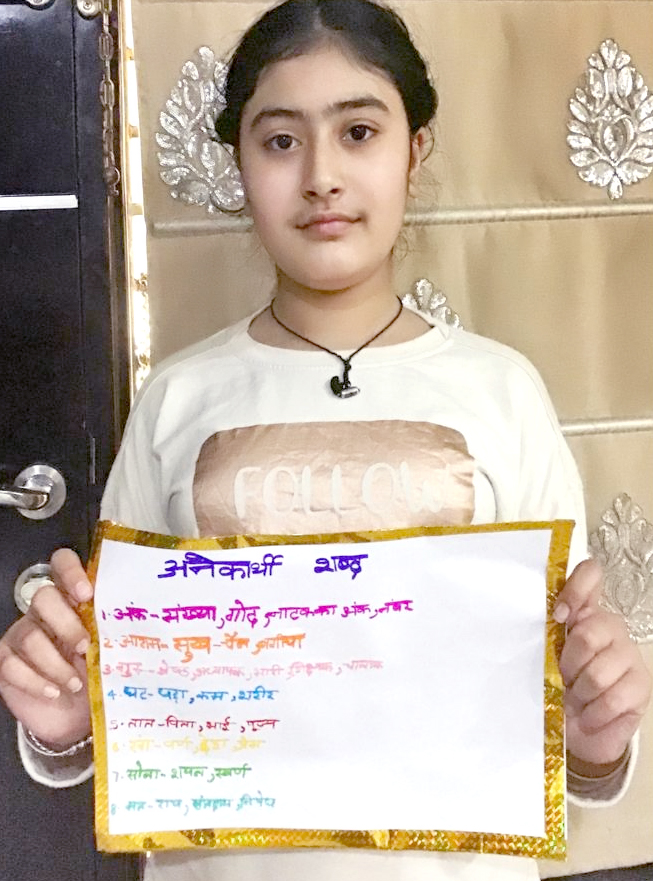 FOLLOW
अनेकार्थी शब्द
1. अंक - संख्या, गोद, नाटक का अंक, नंबर
2. आराम - सुख - चैन, बगीचा
3. गुरु - श्रेष्ठ, अध्यापक, भारी, शिक्षक, चालाक
4. घट - घड़ा, कम, शरीर
5. तात - पिता, भाई, पूज्य
6. रंग - वर्ण, प्रेम
7. सोना - शयन, स्वर्ण
8 मत - राय,